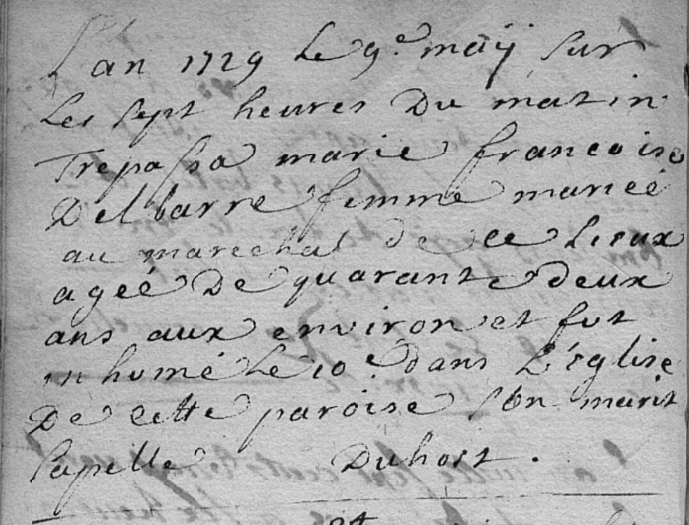 L'an 1729 Le 9e maÿ sur
Les sept heures Du matin
Trepassa marie francoise
Delbarre femme marieé
au marechal de ce Lieux
ageé De quarante deux
ans aux environ et fut
inhumé Le 10e dans L'église
De cette paroise son marit
sapelle Duhost.